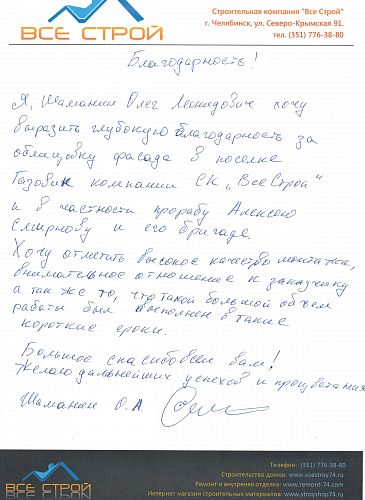 ВСЕ СТРОЙ
Строительная компания "Все Строй"
г. Челябинск, ул. Северо-Крымская 91.
тел. (351) 776-38-80
Благодарность!
Я, Шаманин Олег Леонидович хочу
выразить глубокую благодарность за
облицовку фасада в поселке
Газовик компании СК „ВсеСтрой"
и в частности прорабу Алексею
Смирнову и его бригаде
Хочу отметить высокое качество монтажа,
внимательное отношение к заказчику
а так же то, что такой большой объем
работы был выполнен в такие
короткие сроки.
Большое спасибо всем вам!
Желаю дальнейших успехов и процветания
Шаманин О.А.
ВСЕ СТРОЙ
Телефон: (351) 776-38-80
Строительство домов: www.vsestroy74.ru
Ремонт и внутреняя отделка: www.remont-74.com
Интернет магазин строительных материалов: www.stroyop74.ru